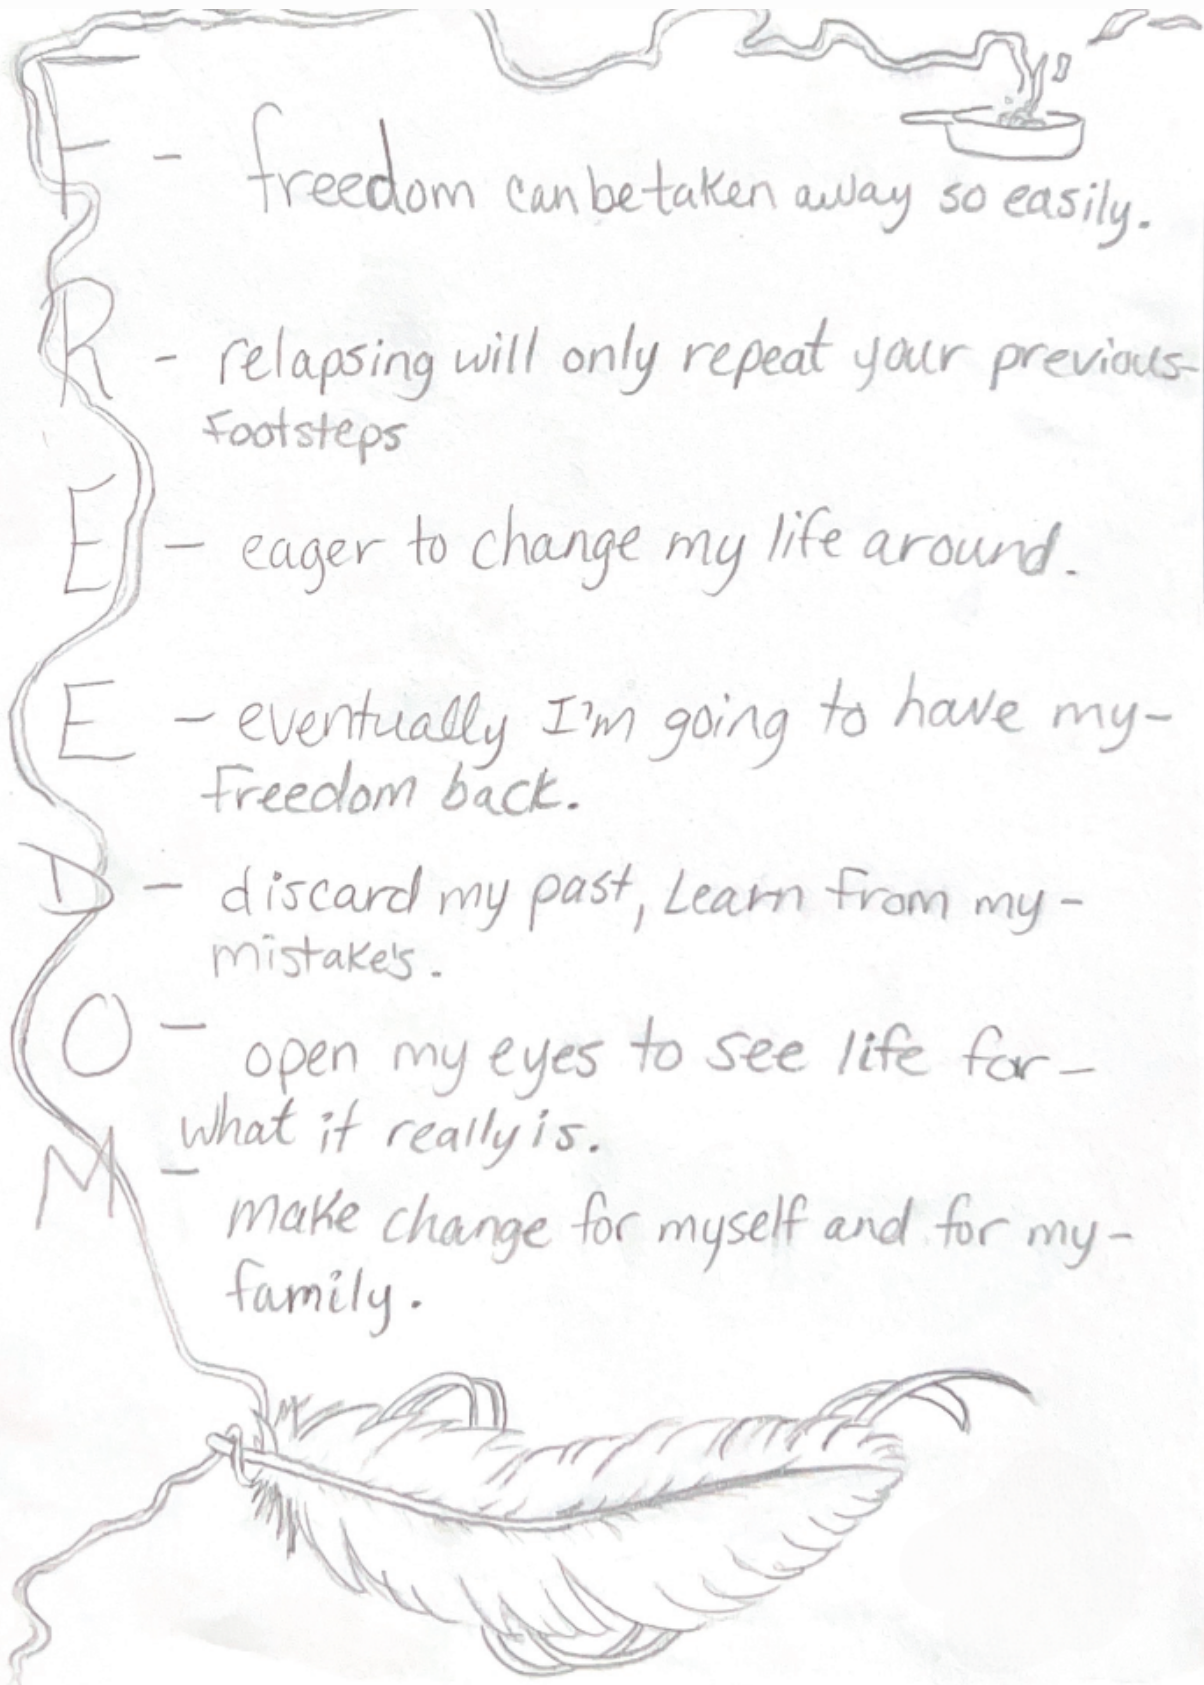 F - freedom can be taken away so easily.
R - relapsing will only repeat your previous-
footsteps
E - eager to change my life around.
E - eventually I'm going to have my-
freedom back.
D - discard my past, Learn from my-
mistake's.
O - open my eyes to see life for-
what it really is.
M - make change for myself and for my-
family.